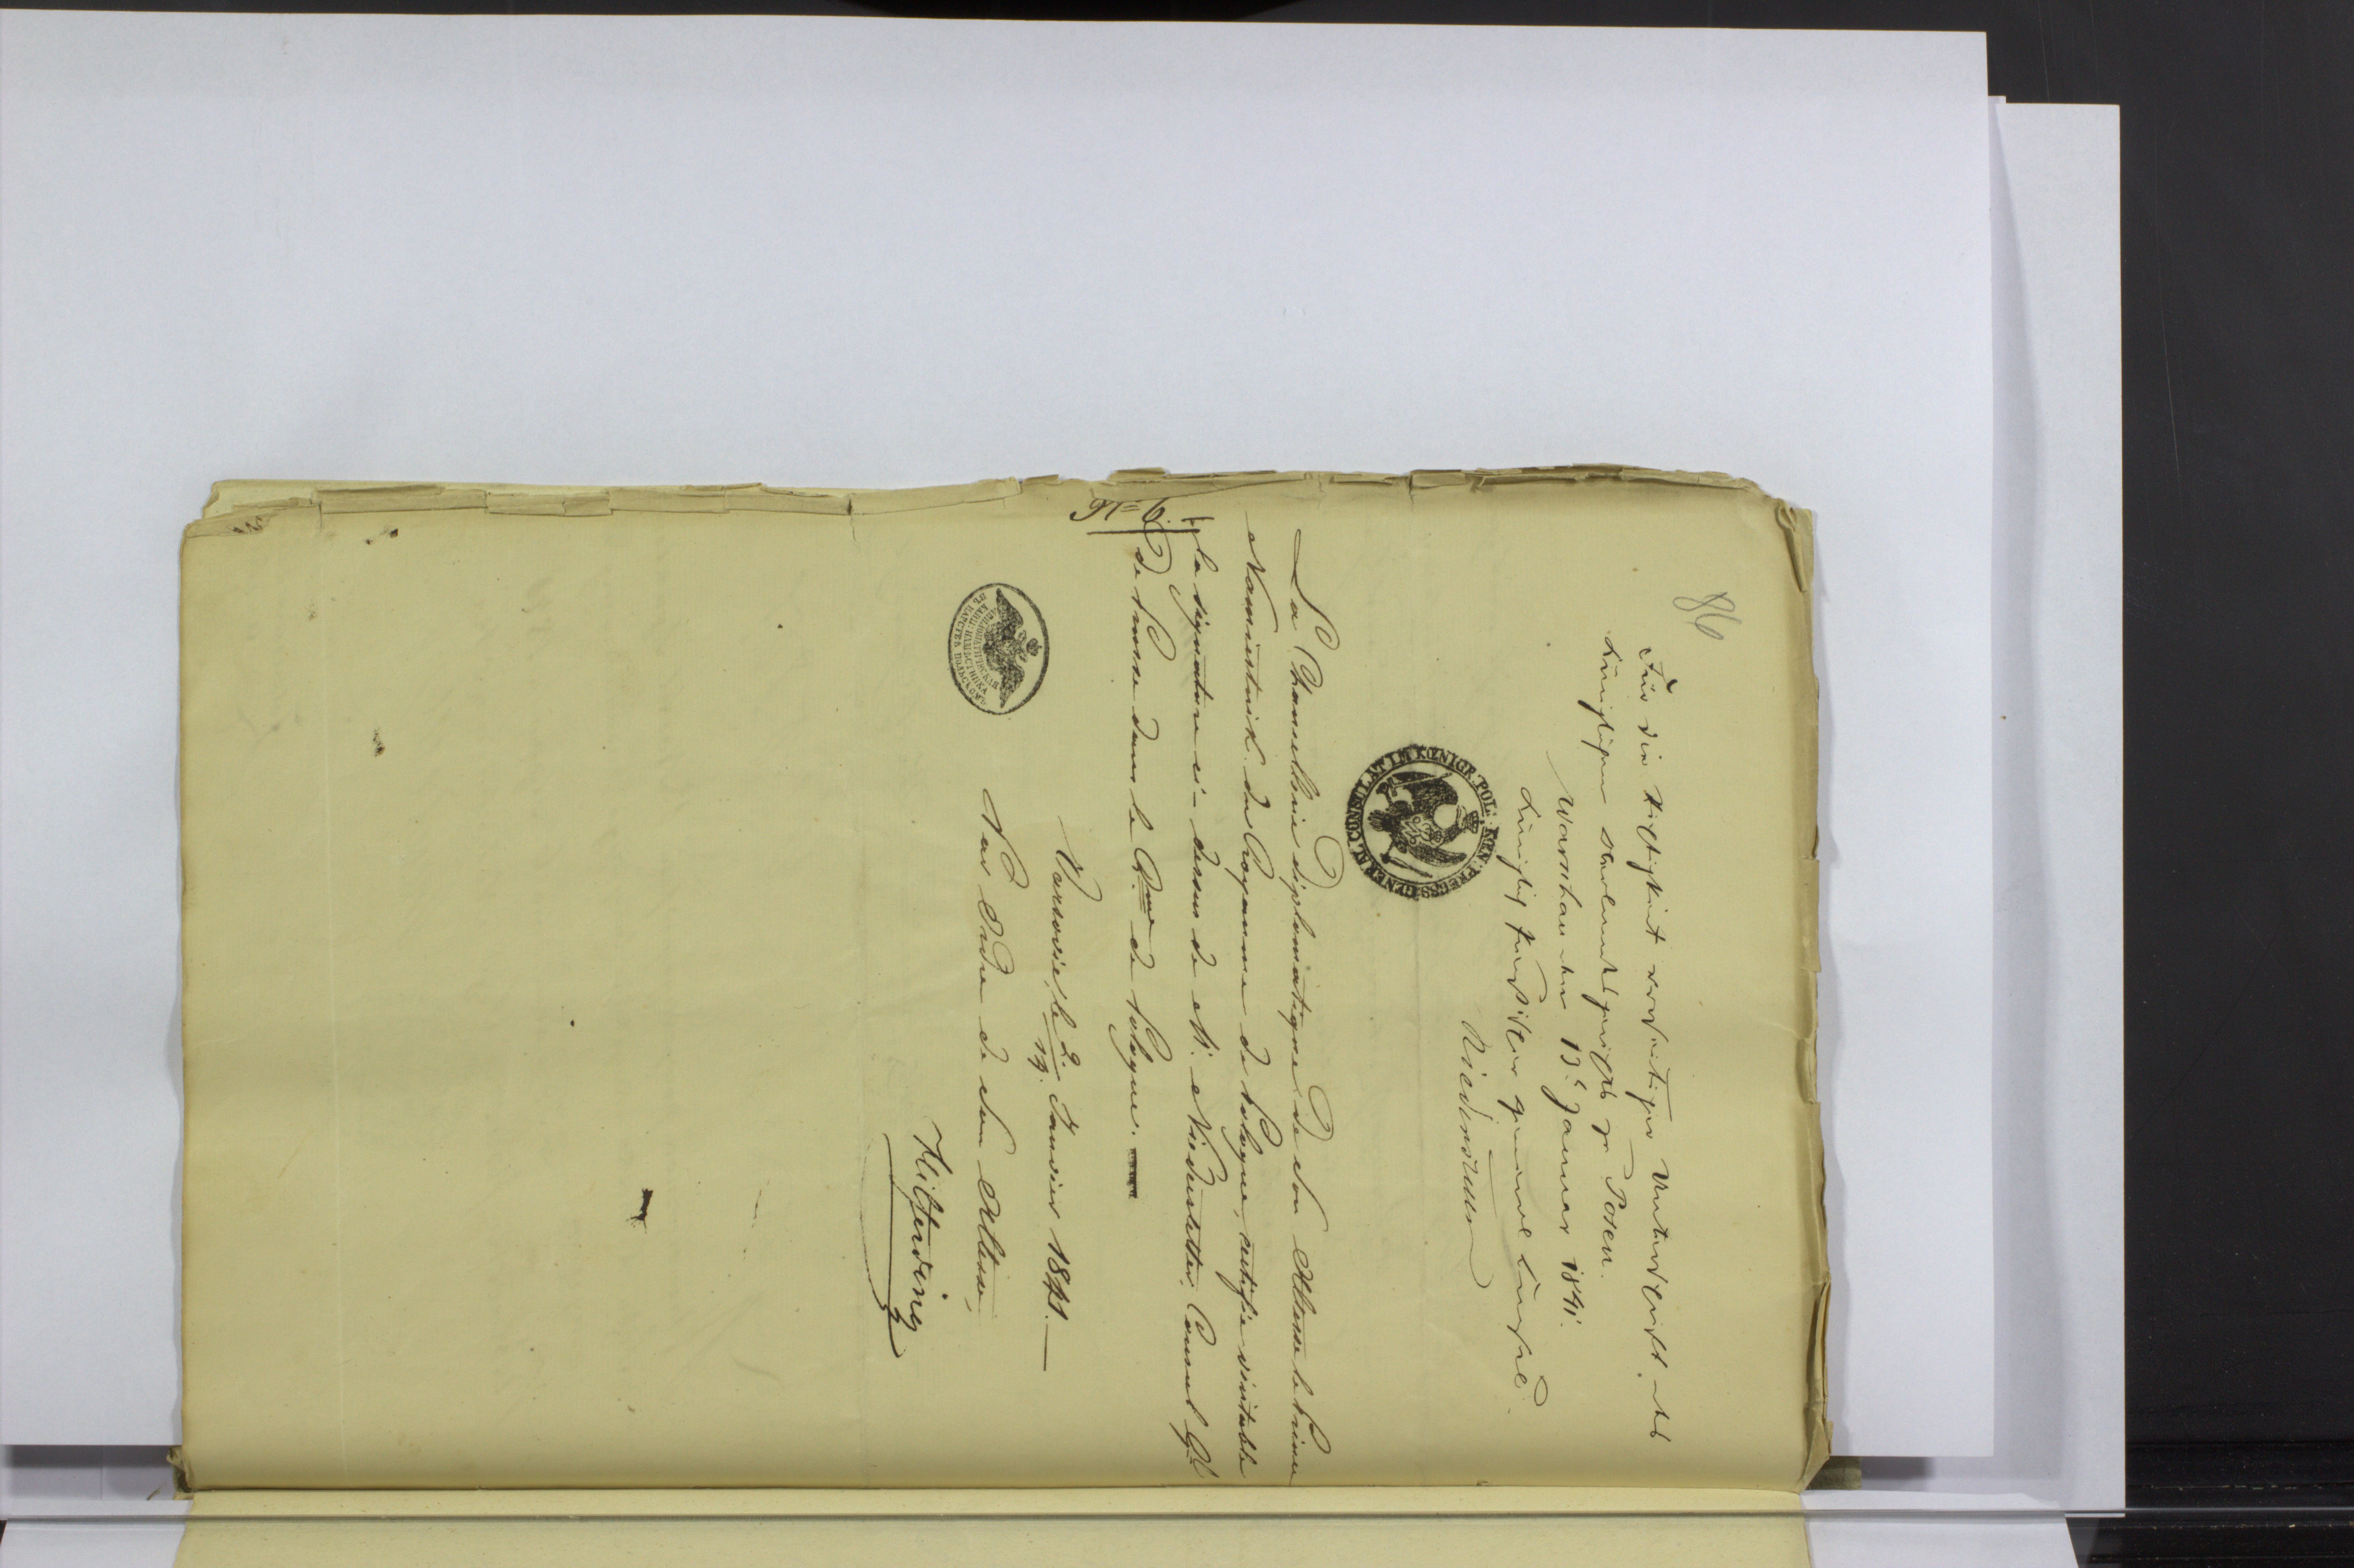 86
Für die Richtigkeit vorseitiger Unterschrift des
Königlichen Landraths zu Posen.
Warschau den 13t Januar 1841.
Königlich Preußischer General Consul.
Niederstetter
KÖN: PREUSS: GENERAL CONSULAT IM KOENIGR: POL:
La Chancellerie diplomatique de Son Altesse le Prince
Namiestnik du Royaume de Pologne, certifie véritable
la signature ci-dessus de M. Niederstetter, Consul Gl
de Prusse dans le Rme de Pologne.
№ 6.
Varsovie, le 2/14. Janvier 1841.
Par Ordre de Son Altesse,
ДИПЛОМАТИЧЕСКАЯ КАНЦ: НАМѢСТНИКА ВЪ ЦАРСТВѢ ПОЛЬСКОМЪ
Hilferding